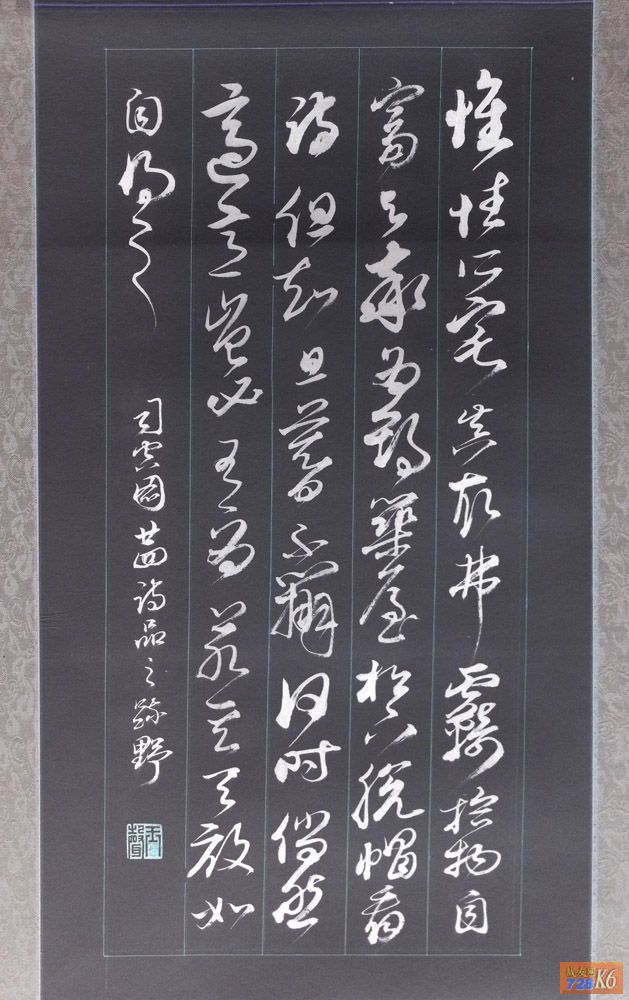 惟性所宅真取弗羈拾物自
富与率為期築屋松下脱帽看
詩但知旦暮不辨何時倘然
適意豈必有為若其天放如
自得之
司空圖廿四詩品之疏野
728 K6